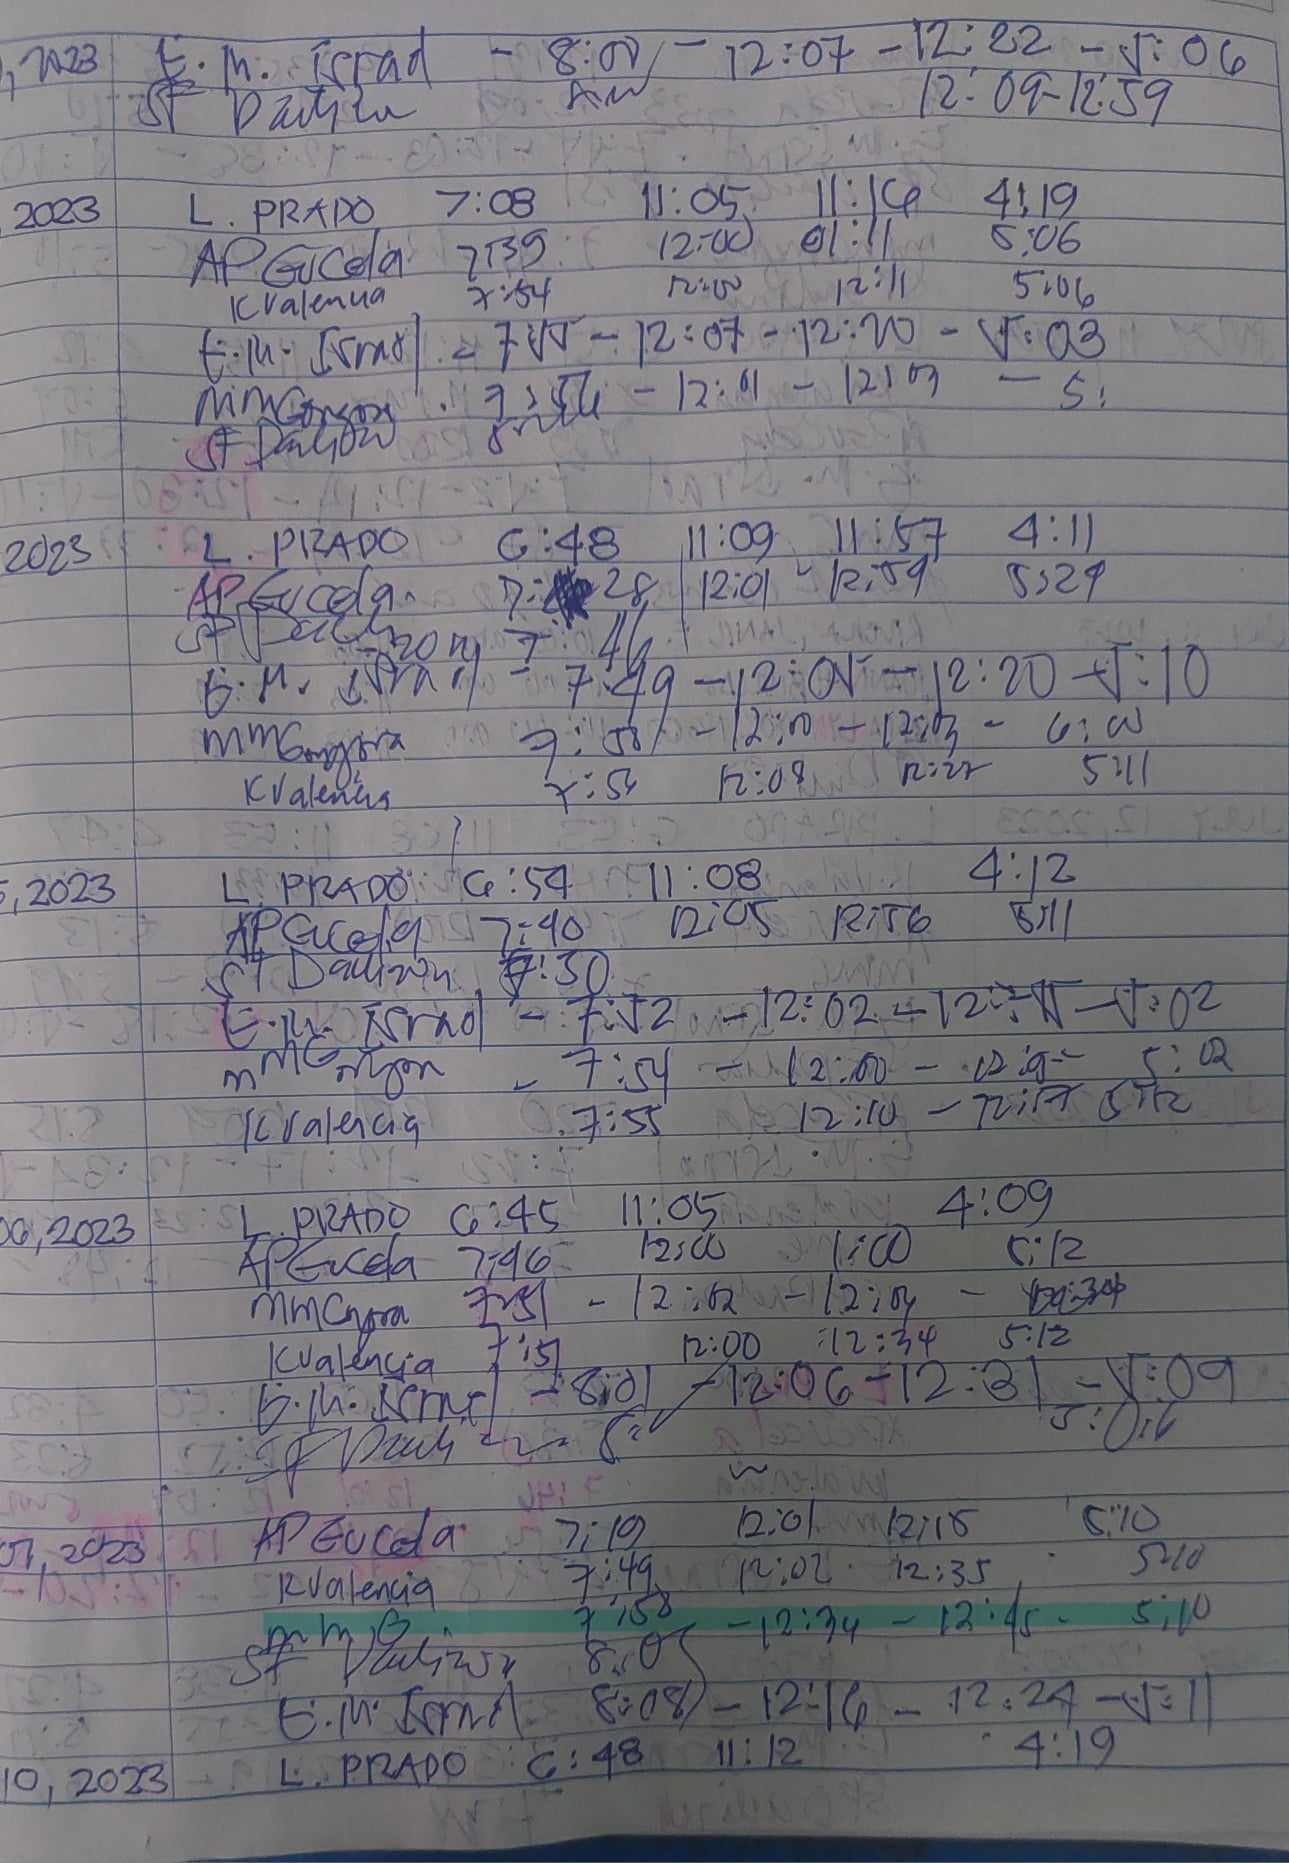 , 2023 E.M. Israel - 8:00 - 12:07 - 12:22 - 5:06
SF 12:09-12:59
2023 L. PRADO 7:08 11:05 11:16 4:19
AP Eucela 7:39 12:00 01:11 5:06
KValencia 7:54 12:00 12:11 5:06
E.M. Israel - 7:55 - 12:07 - 12:20 - 5:03
MM - 12:01 - 12:03 - 5:
SF
2023 L. PRADO 6:48 11:09 11:57 4:11
AP Eucela 7: 28 12:01 - 12:59 5:29
SF 7:46
E.M. Israel - 7:49 - 12:05 - 12:20 - 5:10
MM 7:58 - 12:00 - 12:03 - 6:00
KValencia 7:54 12:08 12:27 5:11
5, 2023 L. PRADO 6:54 11:08 4:12
AP Eucela 7:40 12:05 12:56 5:11
SF 7:30
E.M. Israel - 7:52 - 12:02 - - 5:02
MM - 7:54 - 12:00 - 5:02
KValencia 7:55 12:10 - 12:17 5:12
06, 2023 L. PRADO 6:45 11:05 4:09
AP Eucela 7:46 12:00 1:00 5:12
MM 7:51 - 12:02 - 12:04 -
KValencia 7:51 12:00 12:34 5:12
E.M. Israel - 8:01 - 12:06 - 12:31 - 5:09
SF 5:06
07, 2023 AP Eucela 7:19 12:01 12:15 5:10
KValencia 7:49 12:02 12:35 5:10
MMG 7:58 - 12:34 - 12:45 - 5:10
SF 8:05
E.M. Israel 8:08 - 12:16 - 12:24 - 5:11
10, 2023 L. PRADO 6:48 11:12 4:19